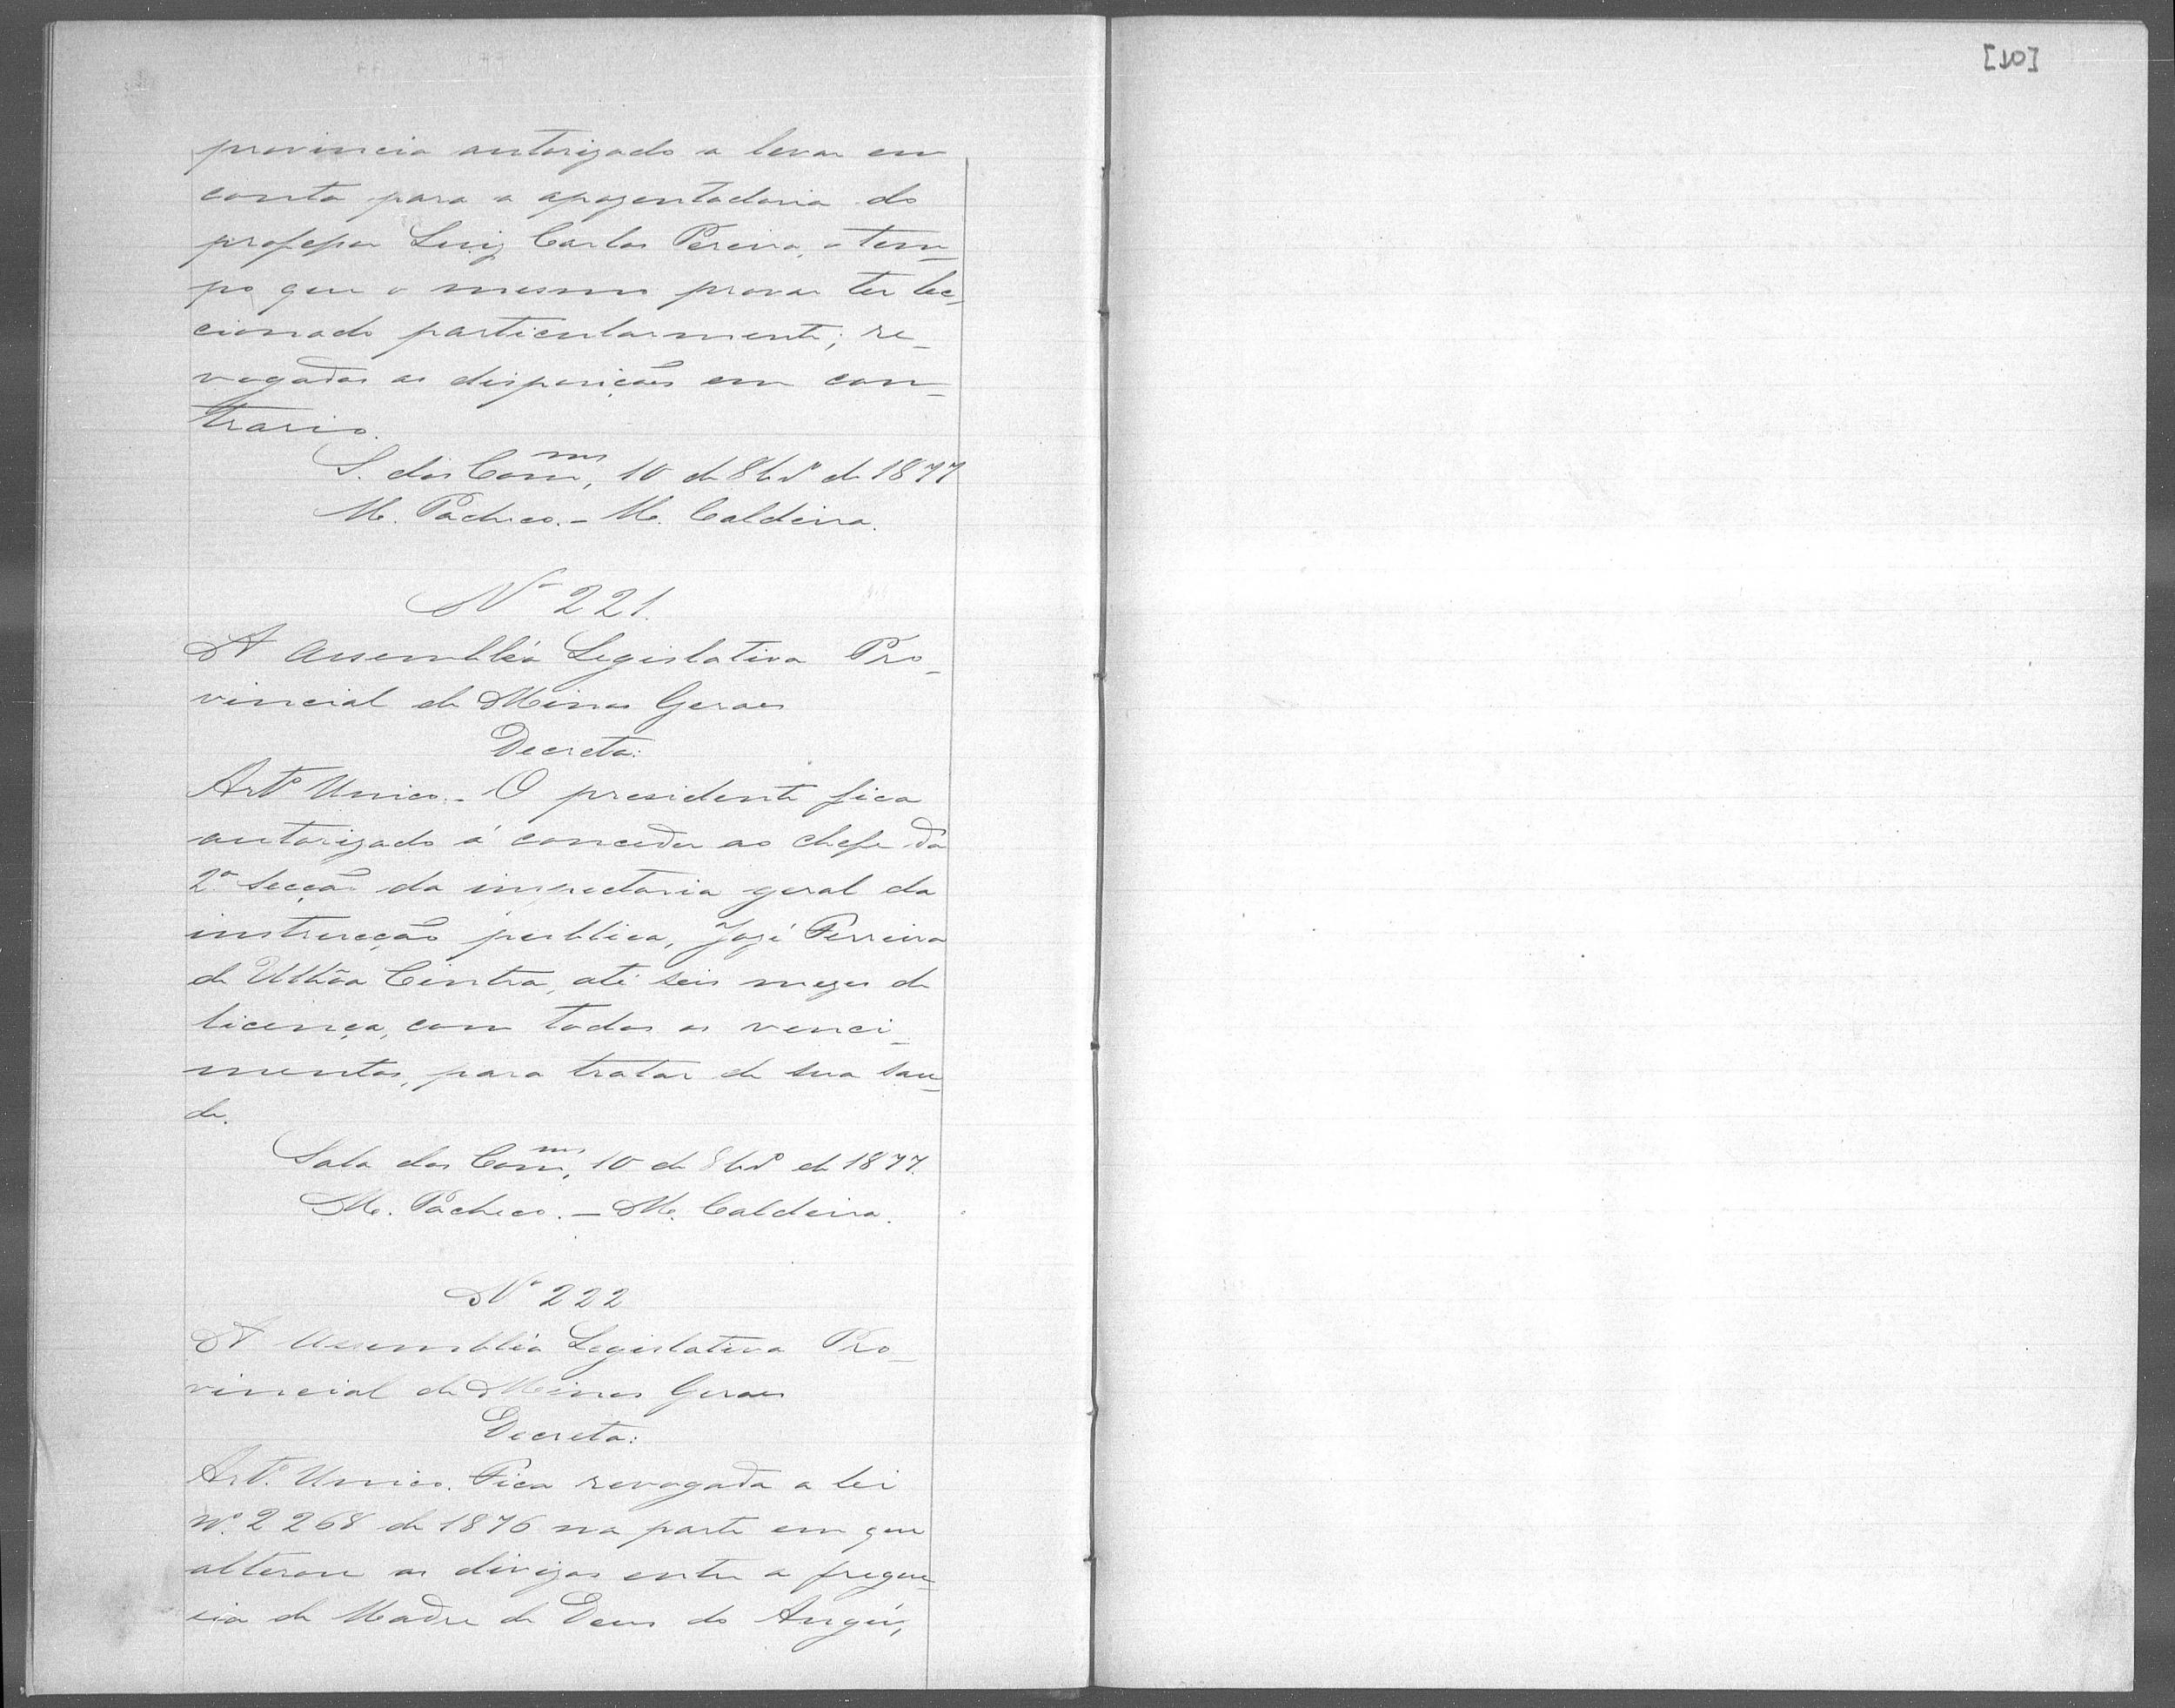 [10]
provincia autorizado a levar em
conta para a apozentadoria do
professor Luiz Carlos Pereira, o tem_
po que o mesmo provar ter lec_
cionado particularmente; re_
vogadas as disposições em con_
trario.
S. das Com.mes, 10 de 8br.o de 1877
M. Pacheco. _ M. Caldeira.
Nº 221.
A Assembléa Legislativa Pro_
vincial de Minas Geraes
Decreta:
Artº Unico. _ O presidente fica
autorizado á conceder ao chefe da
2.ª secção da inspectoria geral da
instrucção publica, José Ferreira
de Ulhôa Cintra, até seis mezes de
licença, com todos os venci_
mentos, para tratar de sua sau_
de.
Sala das Com.mes, 10 de 8br.o de 1877.
M. Pacheco. _ M. Caldeira.
Nº 222
A Assembléa Legislativa Pro_
vincial de Minas Geraes
Decreta:
Artº. Unico. Fica revogada a lei
Nº. 2268 de 1876 na parte em que
alterou as divizas entre a fregue_
sia de Madre de Deus do Angú,